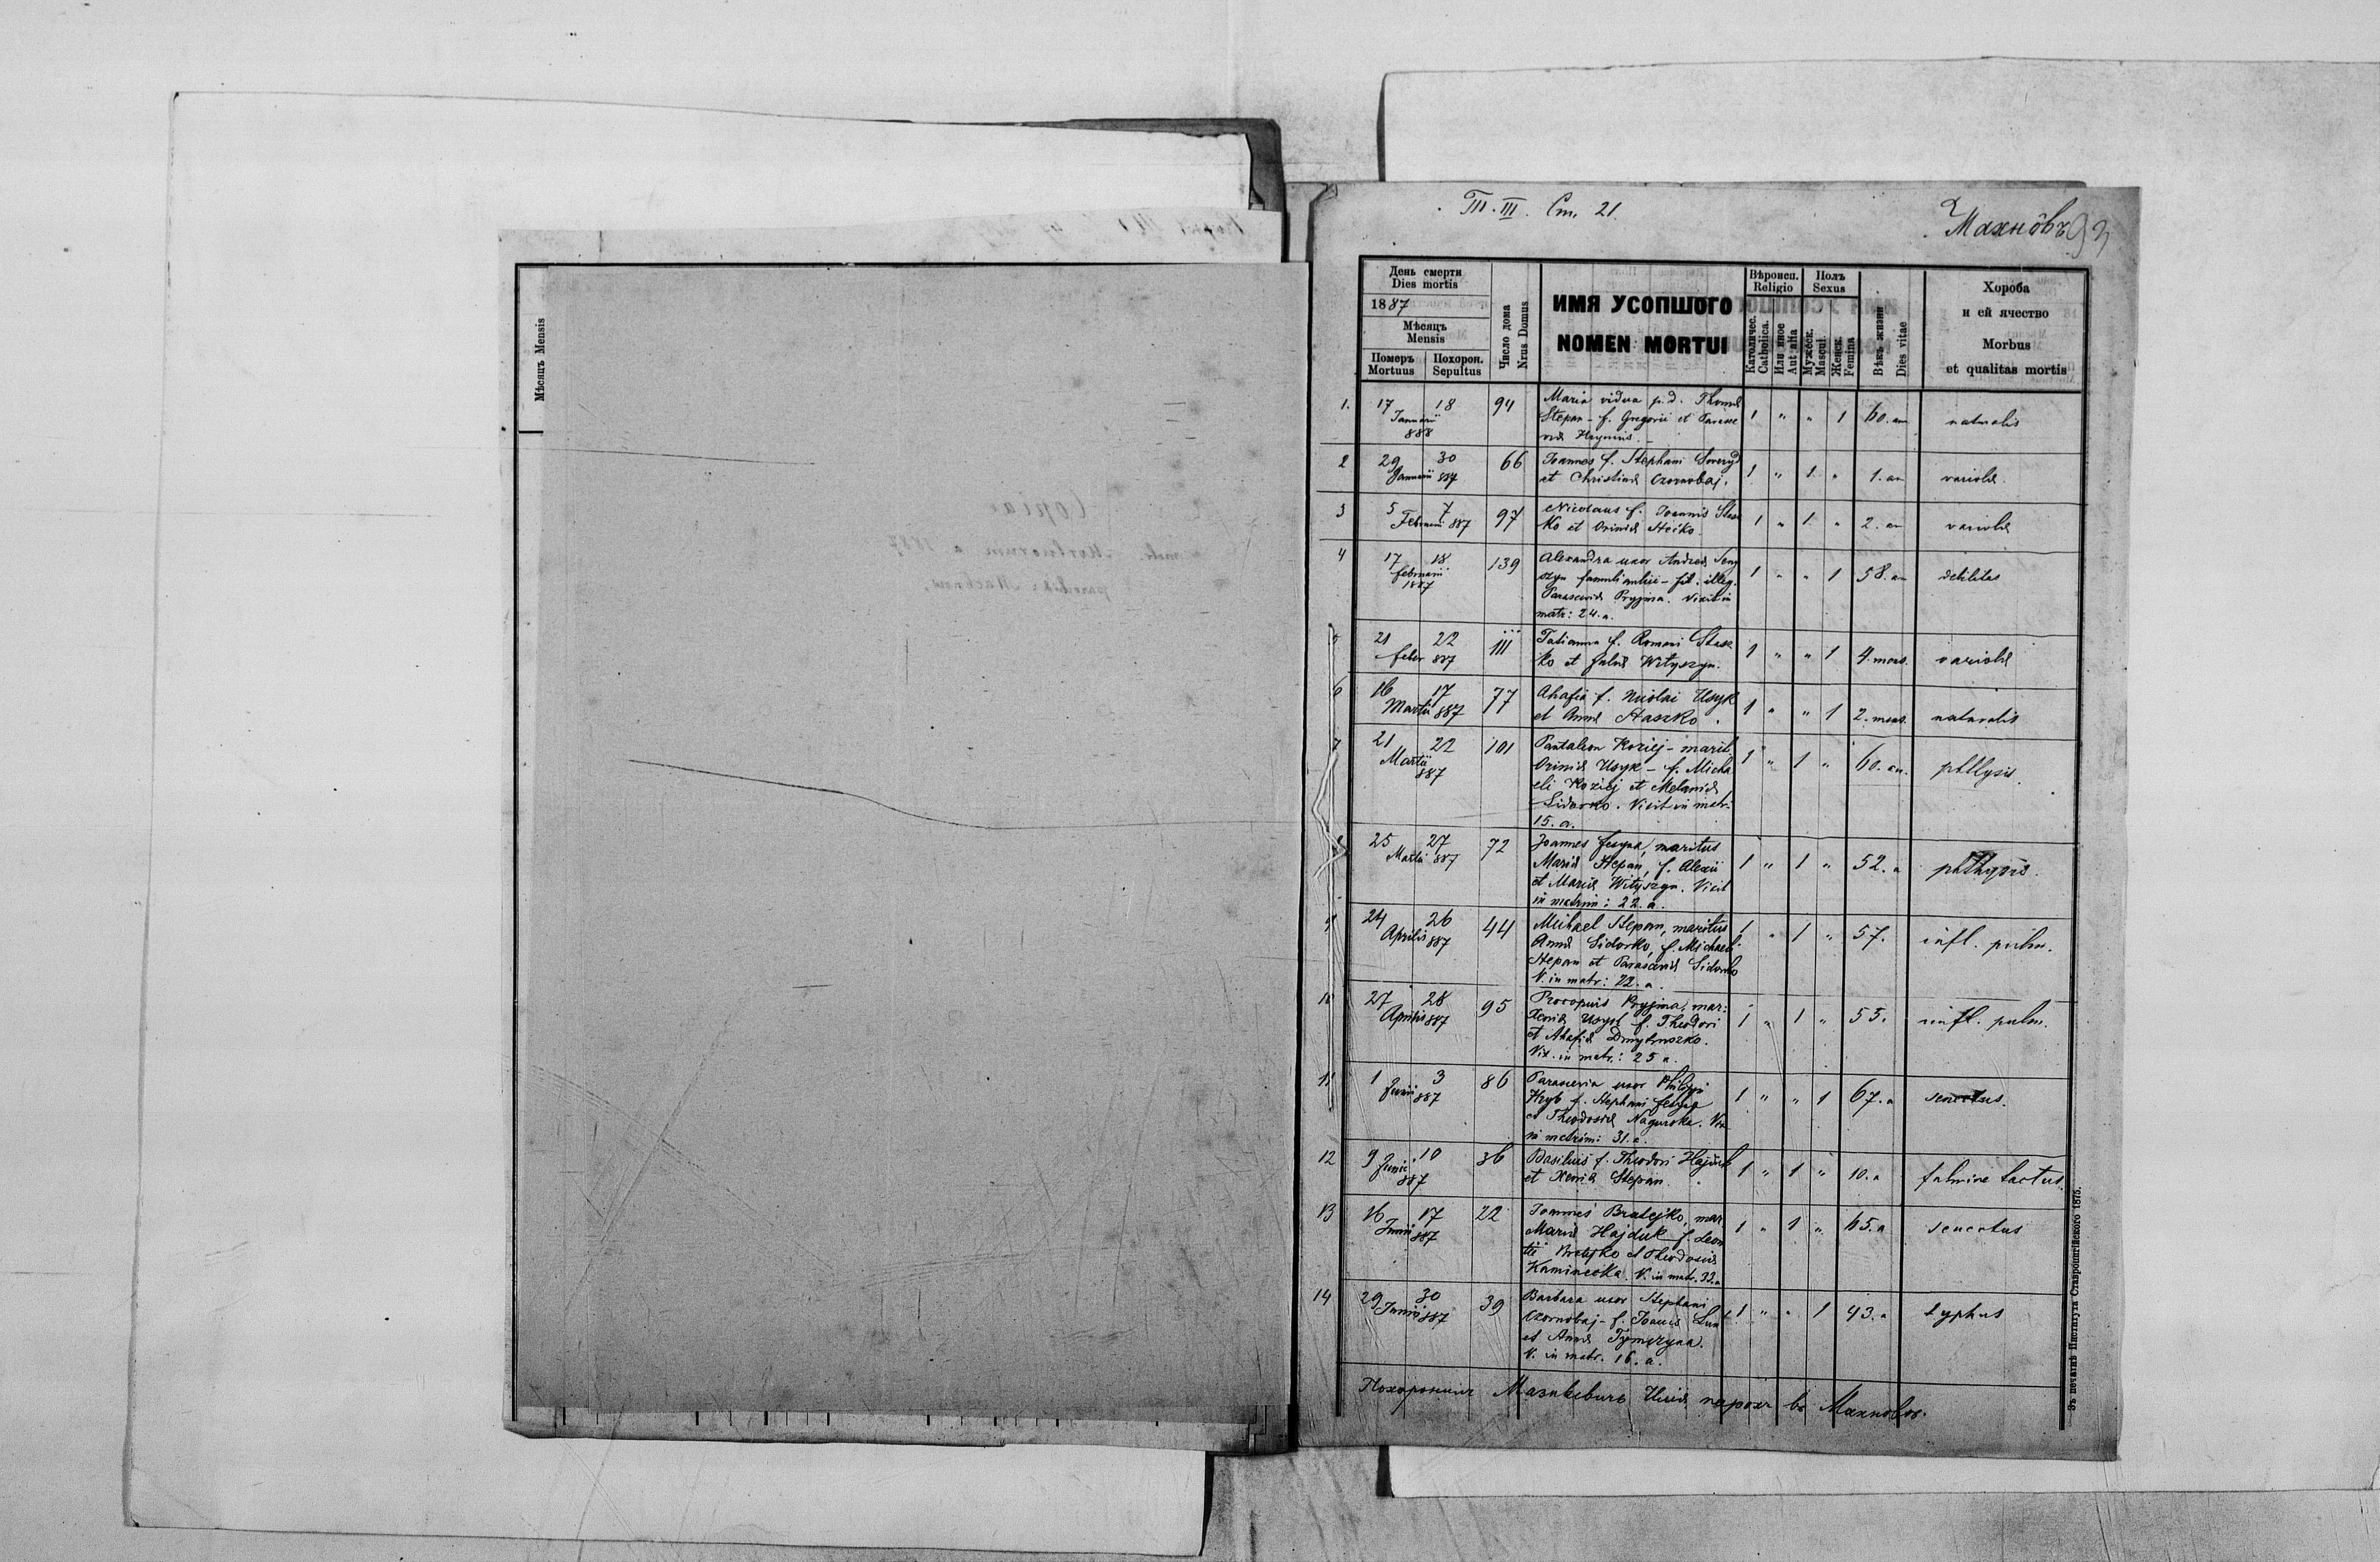 Мѣсяцъ Mensis
Тп. III. Ст. 21.
Махнôвъ 93
День смерти
Dies mortis
1887
Мѣсяцъ
Mensis
Померъ
Mortuus
Похорон.
Sepultus
Число дома
Nrus Domus
ИМЯ УСОПШОГО
NOMEN MORTUI
Вѣроисп.
Religio
Католичес.
Catholica.
Или иное
Aut alia
Полъ
Sexus
Мужеск.
Mascul.
Женск.
Femina
Вѣкъ жизни
Dies vitae
Хороба
и ей ячество
Morbus
et qualitas mortis
1. 17 18 94 Maria vidua p. d. Thomae 1 " " 1 60. an naturalis
Januarii Stepan - f. Gregorii et Parasce
888 viae
2 29 30 66 Joannes f. Stephani 1 " 1 " 1. an variolae
Januarii 887 et Christinae Czornobaj.
3 5 7 97 Nicolaus f. Joannis Stasz 1 " 1 " 2. an variolae
Februarii 887 ko et Irinae Steiko.
4 17 18 139 Alexandra uxor Andreae 1 " " 1 58. an debilitas
februarii fil. illeg.
1887 Parasceviae Pryjma. Vixit in
matr: 24. a.
5 21 22 111 Tatianna f. Romani Stasz 1 " " 1 4. mens. variolae
febr 887 ko et Juliae Wityszyn.
6 16 17 77 Ahafia f. Nicolai Usyk 1 " " 1 2. mens. naturalis
Martii 887 et Annae Staszko.
7 21 22 101 Pantaleon Koziej - marit. 1 " 1 " 60. an. phthysis.
Martii Irinae Usyk - f. Micha
887 eli Koziej et Melaniae
Sidorko. Vixit in matr.
15. a.
8 25 27 72 Joannes Fesyna, maritus 1 " 1 " 52. a phthysis.
Martii 887 Mariae Stepan, f. Alexii
et Mariae Wityszyn. Vixit
in matrim: 22. a.
9 24 26 44 Michael Stepan, maritus 1 " 1 " 57. infl. pulm.
Aprilis 887 Annae Sidorko, f. Michaeli
Stepan et Parasceviae Sidorko
V. in matr: 22. a.
10 27 28 95 Procopius Pryjma, mar: 1 " 1 " 55. infl. pulm.
Aprilis 887 Xeniae Usyk f. Theodori
et Ahafiae Dmytruszko.
Vix. in matr.: 25 a.
11 1 3 86 Parascevia uxor Philippi 1 " " 1 67. a senectus.
Junii 887 Hryb f. Stephani Fesyna
et Theodosiae Nagurska. Vix
in matrim: 31. a.
12 9 10 36 Basilius f. Theodori Hajduk 1 " 1 " 10. a fulmine tactus.
Junii 887 et Xeniae Stepan.
13 16 17 22 Joannes Bratejko, mar. 1 " 1 " 65. a senectus
Junii 887 Mariae Hajduk f. Leon
tii Bratejko et Theodosiae
Kaminecka. V. in matr. 32. a
14 29 30 39 Barbara uxor Stephani 1 " " 1 43. a typhus
Junii 887 Czornobaj - f. Joannis
et Annae Tymczyna.
V. in matr. 16. a.
Похоронилъ парохъ въ Махновѣ.
Зъ печатнѣ Института Ставропигійского 1875.